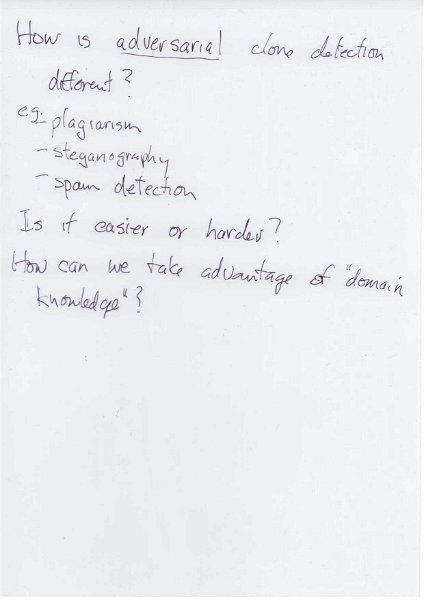 How is adversarial clone detection
different?
eg: plagiarism
- steganography
- spam detection
Is it easier or harder?
How can we take advantage of "domain
knowledge"?